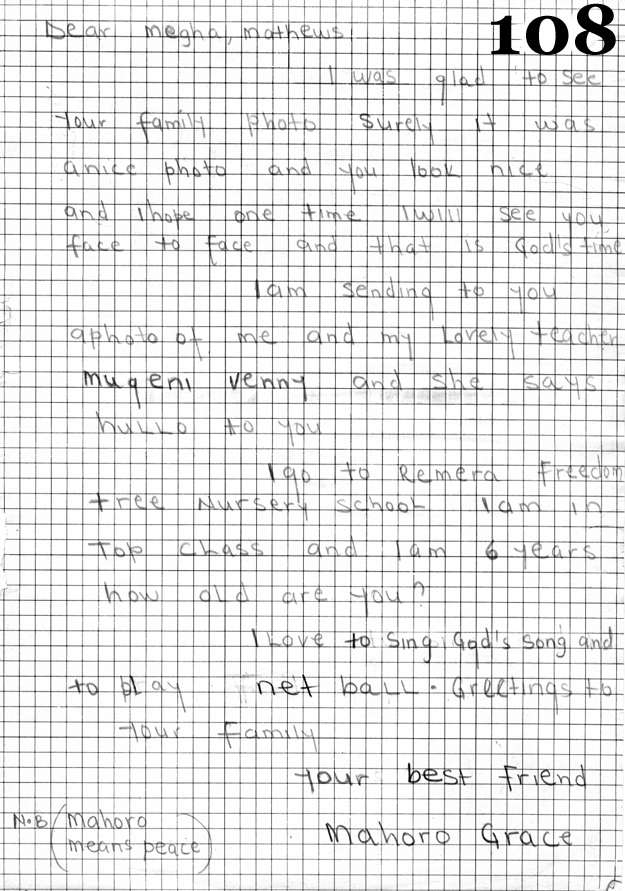 108
Dear megha, mathews!
I was glad to see
Your family photo surely it was
anice photo and you look nice
and Ihope one time IWIll see you
face to face and that is God's time
Iam sending to you
aphoto of me and my Lovely teacher
mugeni venny and she says
huLLo to you
Igo to Remera freedom
tree Nursery schooL Iam in
Top cLass and Iam 6 years
how oLd are you?
I Love to sing God's song and
to pLay net baLL. Greetings to
Your family
Your best friend
N.B (mahoro
means peace)
Mahoro Grace